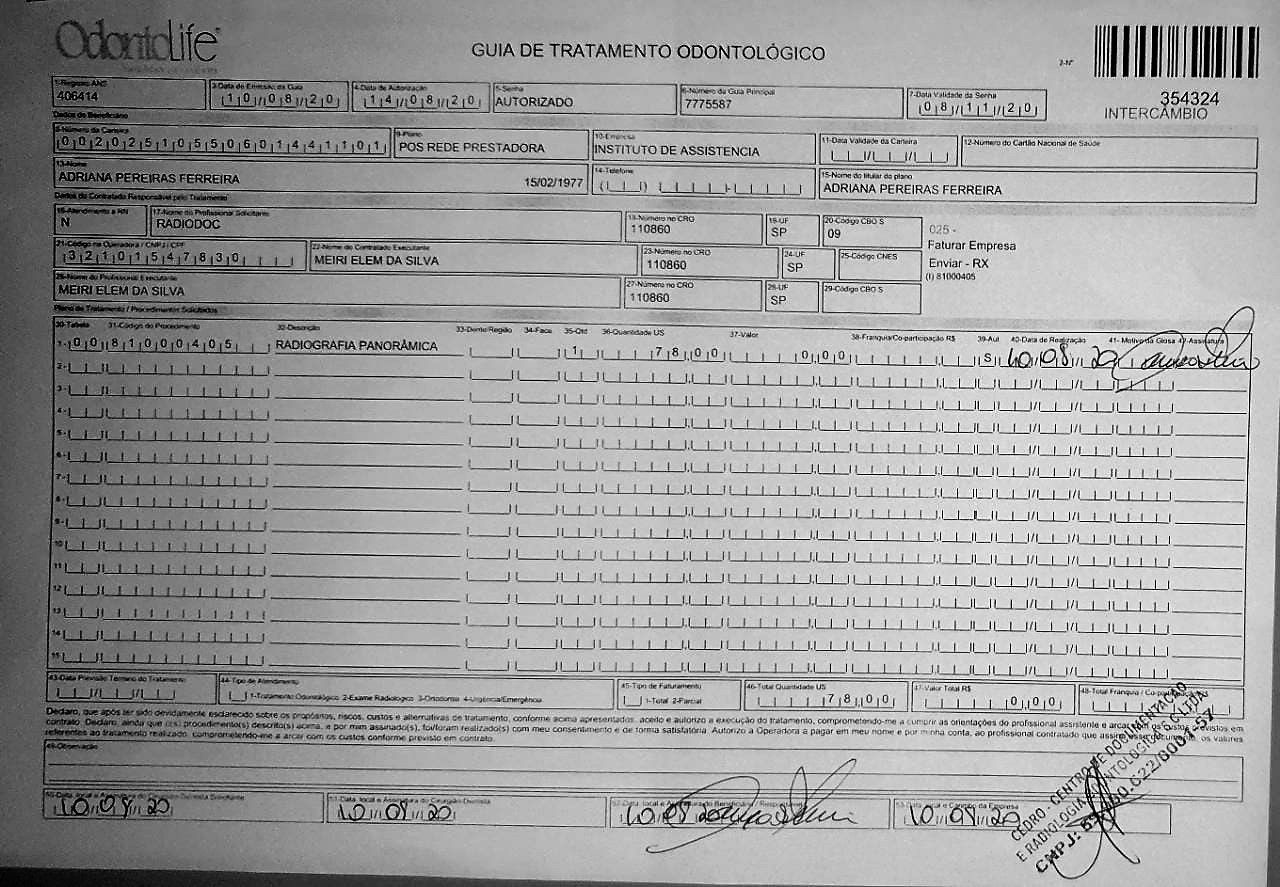 OdontoLife
GUIA DE TRATAMENTO ODONTOLÓGICO
2-Nº
354324
INTERCÂMBIO
1-Registro ANS
406414
3-Data de Emissão da Guia
10/08/20
4-Data de Autorização
14/08/20
5-Senha
AUTORIZADO
6-Número da Guia Principal
7775587
7-Data Validade da Senha
08/11/20
Dados do Beneficiário
8-Número da Carteira
00202510550601441101
9-Plano
POS REDE PRESTADORA
10-Empresa
INSTITUTO DE ASSISTENCIA
11-Data Validade da Carteira
12-Número do Cartão Nacional de Saúde
13-Nome
ADRIANA PEREIRAS FERREIRA 15/02/1977
14-Telefone
15-Nome do titular do plano
ADRIANA PEREIRAS FERREIRA
Dados do Contratado Responsável pelo Tratamento
16-Atendimento a RN
N
17-Nome do Profissional Solicitante
RADIODOC
18-Número no CRO
110860
19-UF
SP
20-Código CBO S
09
025 -
Faturar Empresa
Enviar - RX
(I) 81000405
21-Código na Operadora / CNPJ / CPF
32101547830
22-Nome do Contratado Executante
MEIRI ELEM DA SILVA
23-Número no CRO
110860
24-UF
SP
25-Código CNES
26-Nome do Profissional Executante
MEIRI ELEM DA SILVA
27-Número no CRO
110860
28-UF
SP
29-Código CBO S
Plano de Tratamento / Procedimentos Solicitados
30-Tabela 31-Código do Procedimento 32-Descrição 33-Dente/Região 34-Face 35-Qtd 36-Quantidade US 37-Valor 38-Franquia/Co-participação R$ 39-Aut 40-Data de Realização 41- Motivo da Glosa 42-Assinatura
1- 00 81000405 RADIOGRAFIA PANORÂMICA 1 78,00 0,00 S 10/08/20
2-
3-
4-
5-
6-
7-
8-
9-
10
11
12
13
14
15
43-Data Previsão Término do Tratamento
44-Tipo de Atendimento
1-Tratamento Odontológico 2-Exame Radiológico 3-Ortodontia 4-Urgência/Emergência
45-Tipo de Faturamento
1-Total 2-Parcial
46-Total Quantidade US
78,00
47-Valor Total R$
0,00
48-Total Franquia / Co-participação
Declaro, que após ter sido devidamente esclarecido sobre os propósitos, riscos, custos e alternativas de tratamento, conforme acima apresentados, aceito e autorizo a execução do tratamento, comprometendo-me a cumprir as orientações do profissional assistente e arcar com os custos previstos em
contrato. Declaro, ainda que o(s) procedimento(s) descrito(s) acima, e por mim assinado(s), foi/foram realizado(s) com meu consentimento e de forma satisfatória. Autorizo a Operadora a pagar em meu nome e por minha conta, ao profissional contratado que assina esse documento, os valores
referentes ao tratamento realizado, comprometendo-me a arcar com os custos conforme previsto em contrato.
49-Observação
50-Data, local e Assinatura do Cirurgião-Dentista Solicitante
10/08/20
51-Data, local e Assinatura do Cirurgião-Dentista
10/08/20
52-Data, local e Assinatura do Beneficiário / Responsável
10/08/20
53-Data, local e Carimbo da Empresa
10/08/20
CEDRO - CENTRO DE DOCUMENTAÇÃO
E RADIOLOGIA ODONTOLÓGICA LTDA
CNPJ: